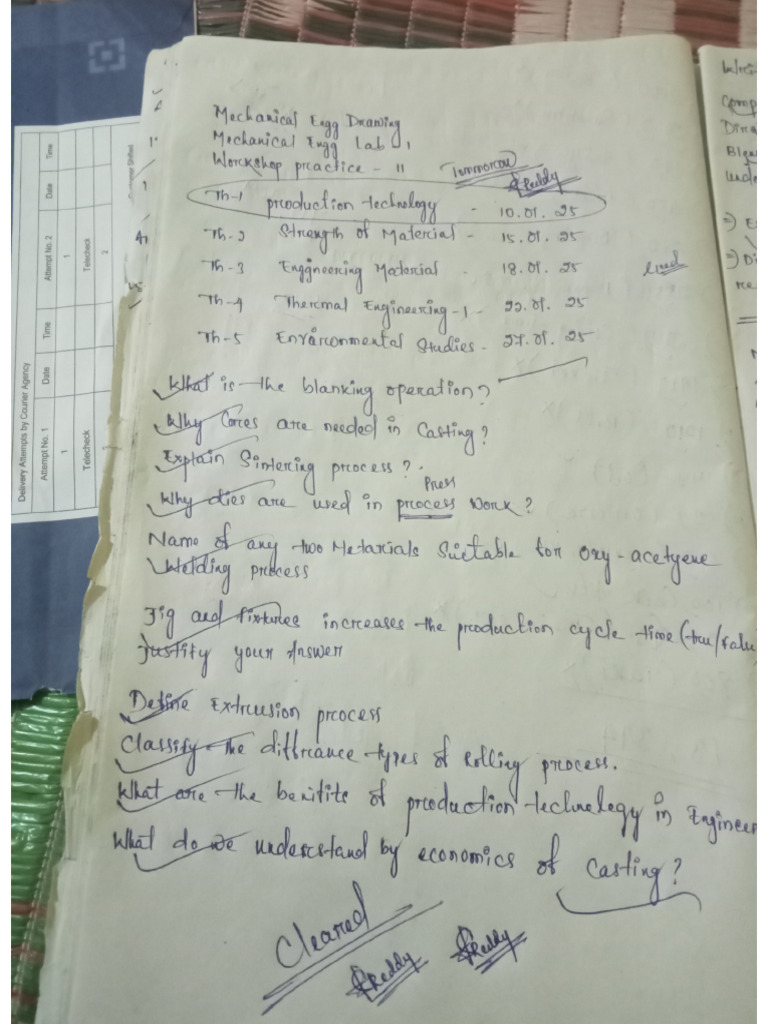 Mechanical Engg Drawing
Mechanical Engg Lab 1
Workshop practice - II
Tommorow
Reddy
Th-1 production technology - 10.01.25
Th-2 Strength of Material - 15.01.25
Th-3 Enggneering Material - 18.01.25
Th-4 Thermal Engineering-1 - 22.01.25
Th-5 Environmental Studies - 27.01.25
What is the blanking operation?
Why Cores are needed in Casting?
Explain Sintering process?
Press
Why dies are used in process work?
Name of any two Metarials Suetable for oxy-acetyene
Welding process
Jig and fixtures increases the production cycle time (tru/
Justify your Answer
Define Extrusion process
Classify the diffrance types of Rolling process.
What are the benifits of production technology in Engineer
What do we understand by economics of Casting?
Cleared
Reddy
Reddy
Delivery Attempts by Courier Agency
Attempt No. 1 Date Time Attempt No. 2 Date Time
1 1
Telecheck Telecheck
2
Customer Shifted